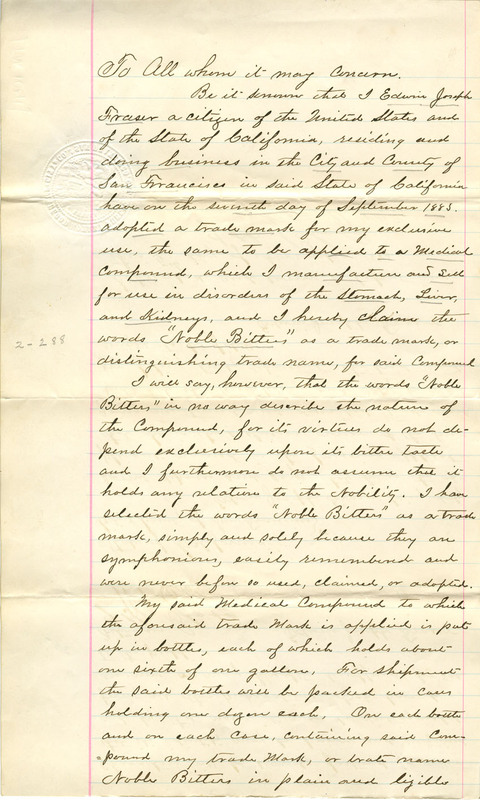 To All whom it may Concern.
Be it known that I Edwin Joseph
Fraser a citizen of the United States and
of the State of California, residing and
doing business in the City and County of
San Francisco in said State of California
have on the seventh day of September 1883.
adopted a trade mark for my exclusive
use, the same to be applied to a Medical
Compound, which I manufacture and sell
for use in disorders of the Stomach, Liver,
and Kidneys, and I hereby claim the
words "Noble Bitters" as a trade mark, or
2-288
distinguishing trade name, for said Compound
I will say, however, that the words "Noble
Bitters" in no way describe the nature of
the Compound, for its virtues do not de-
pend exclusively upon its bitter taste
and I furthermore do not assume that it
holds any relation to the Nobility. I have
selected the words "Noble Bitters" as a trade
mark, simply and solely because they are
symphonious, easily remembered and
were never before so used, claimed, or adopted.
My said Medical Compound to which
the aforesaid trade Mark is applied is put
up in bottles, each of which holds about
one sixth of one gallon. For shipment
the said bottles will be packed in cases
holding one dozen each. On each bottle
and on each case, containing said Com-
=pound my trade Mark, or trade name
Noble Bitters in plain and legible